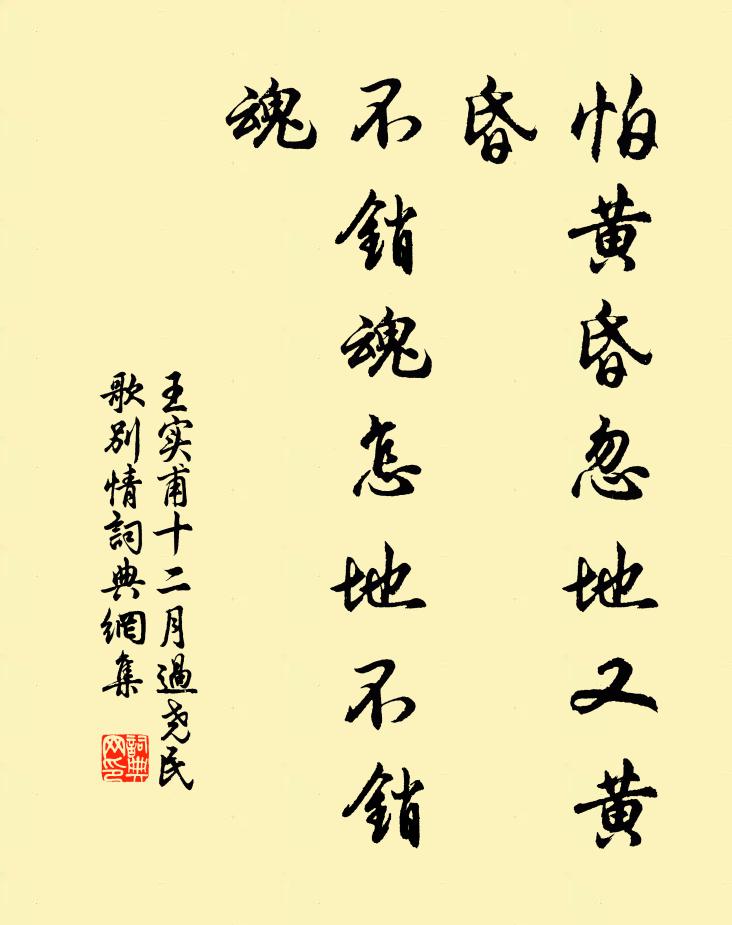 怕黄昏忽地又黄
昏
不銷魂怎地不銷
魂
王实甫十二月過尧民
歌别情詞典網集
詞典
网印